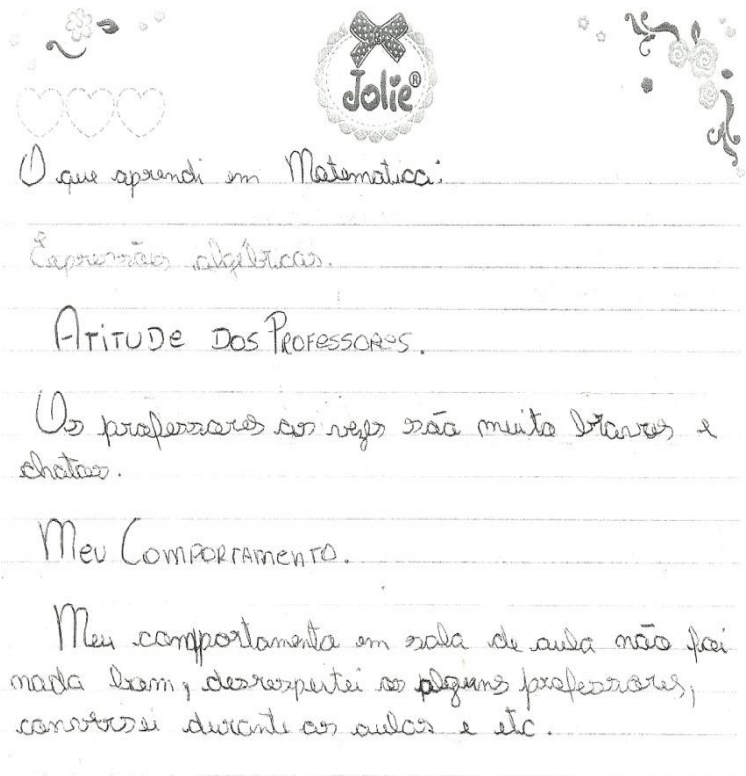 Jolie®
O que aprendi em Matematica:
Expressões algébricas.
ATITUDE DOS PROFESSORES.
Os professores as vezes são muito bravos e
chatos.
MEU COMPORTAMENTO.
Meu comportamento em sala de aula não foi
nada bom, desrespeitei os alguns professores,
conversei durante as aulas e etc.